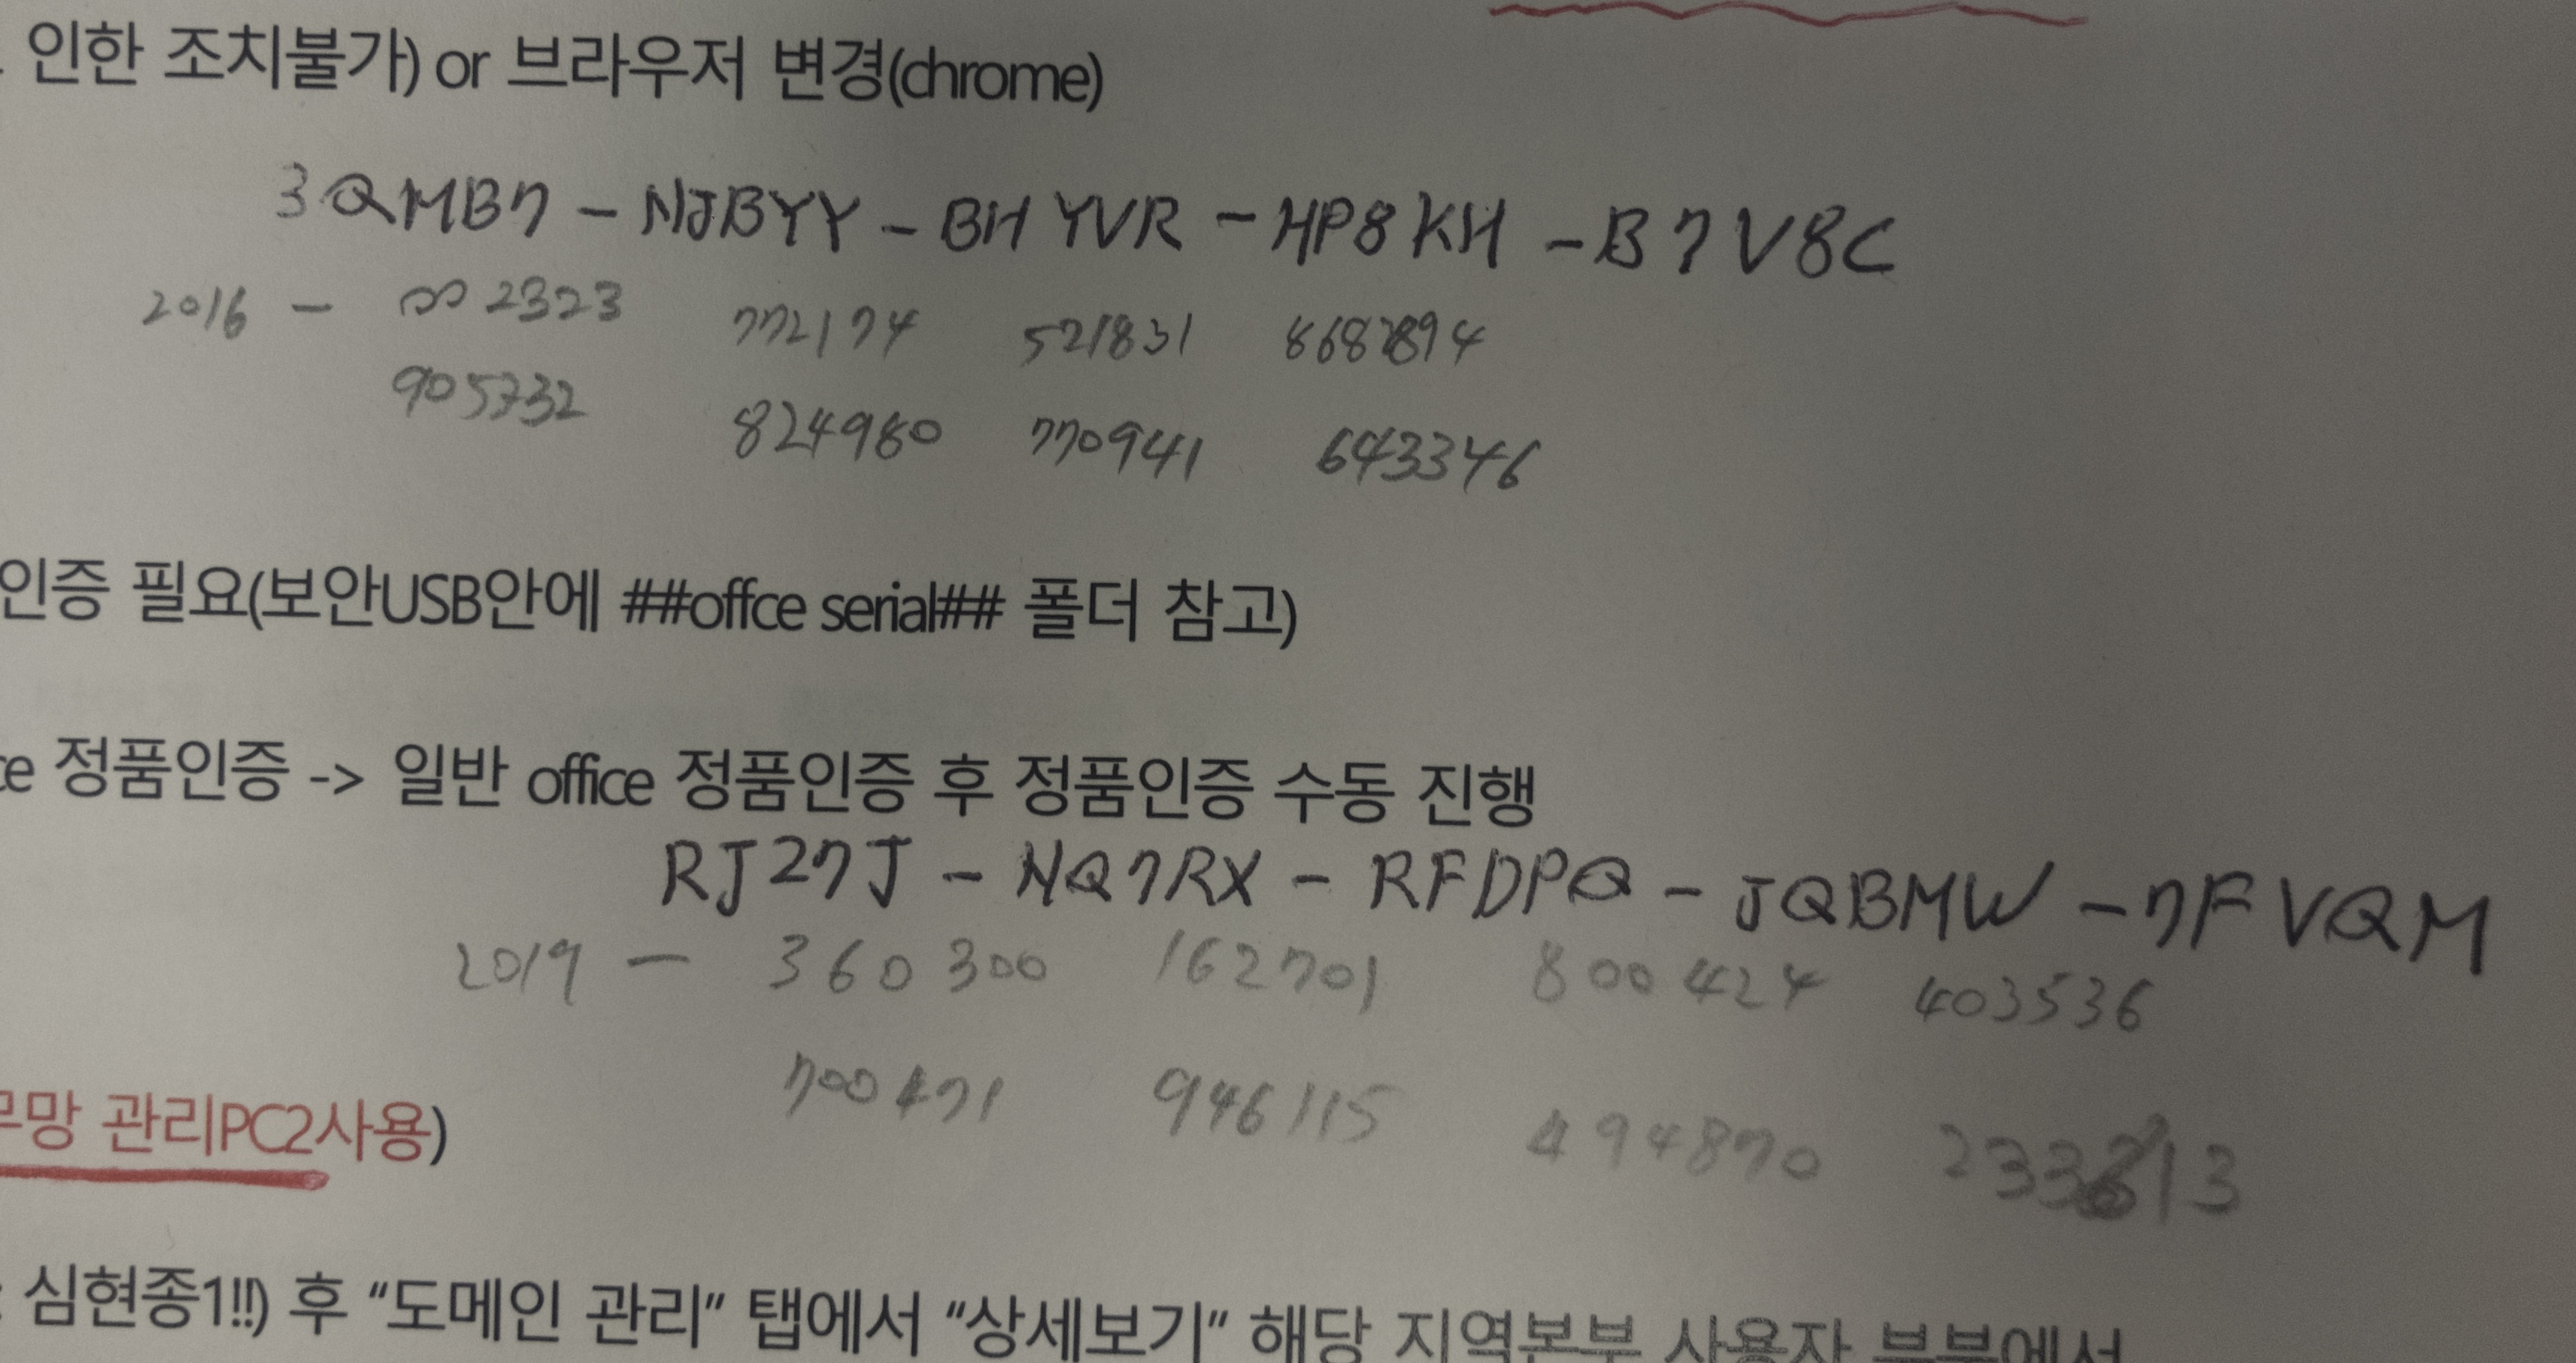 인한 조치불가) or 브라우저 변경(chrome)
3QMB7 - NJBYY - BHYVR - HP8KH - B7V8C
2016 - 002323 772174 521831
905732 824980 770941 643346
인증 필요(보안USB안에 ##offce serial## 폴더 참고)
정품인증 -> 일반 office 정품인증 후 정품인증 수동 진행
RJ27J - NQ7RX - RFDPQ - JQBMW - 7FVQM
2019 - 360300 162701 800424 403536
700471 946115 494870
관리PC2사용)
심현종1!!) 후 “도메인 관리” 탭에서 “상세보기” 해당 지역본부 사용자